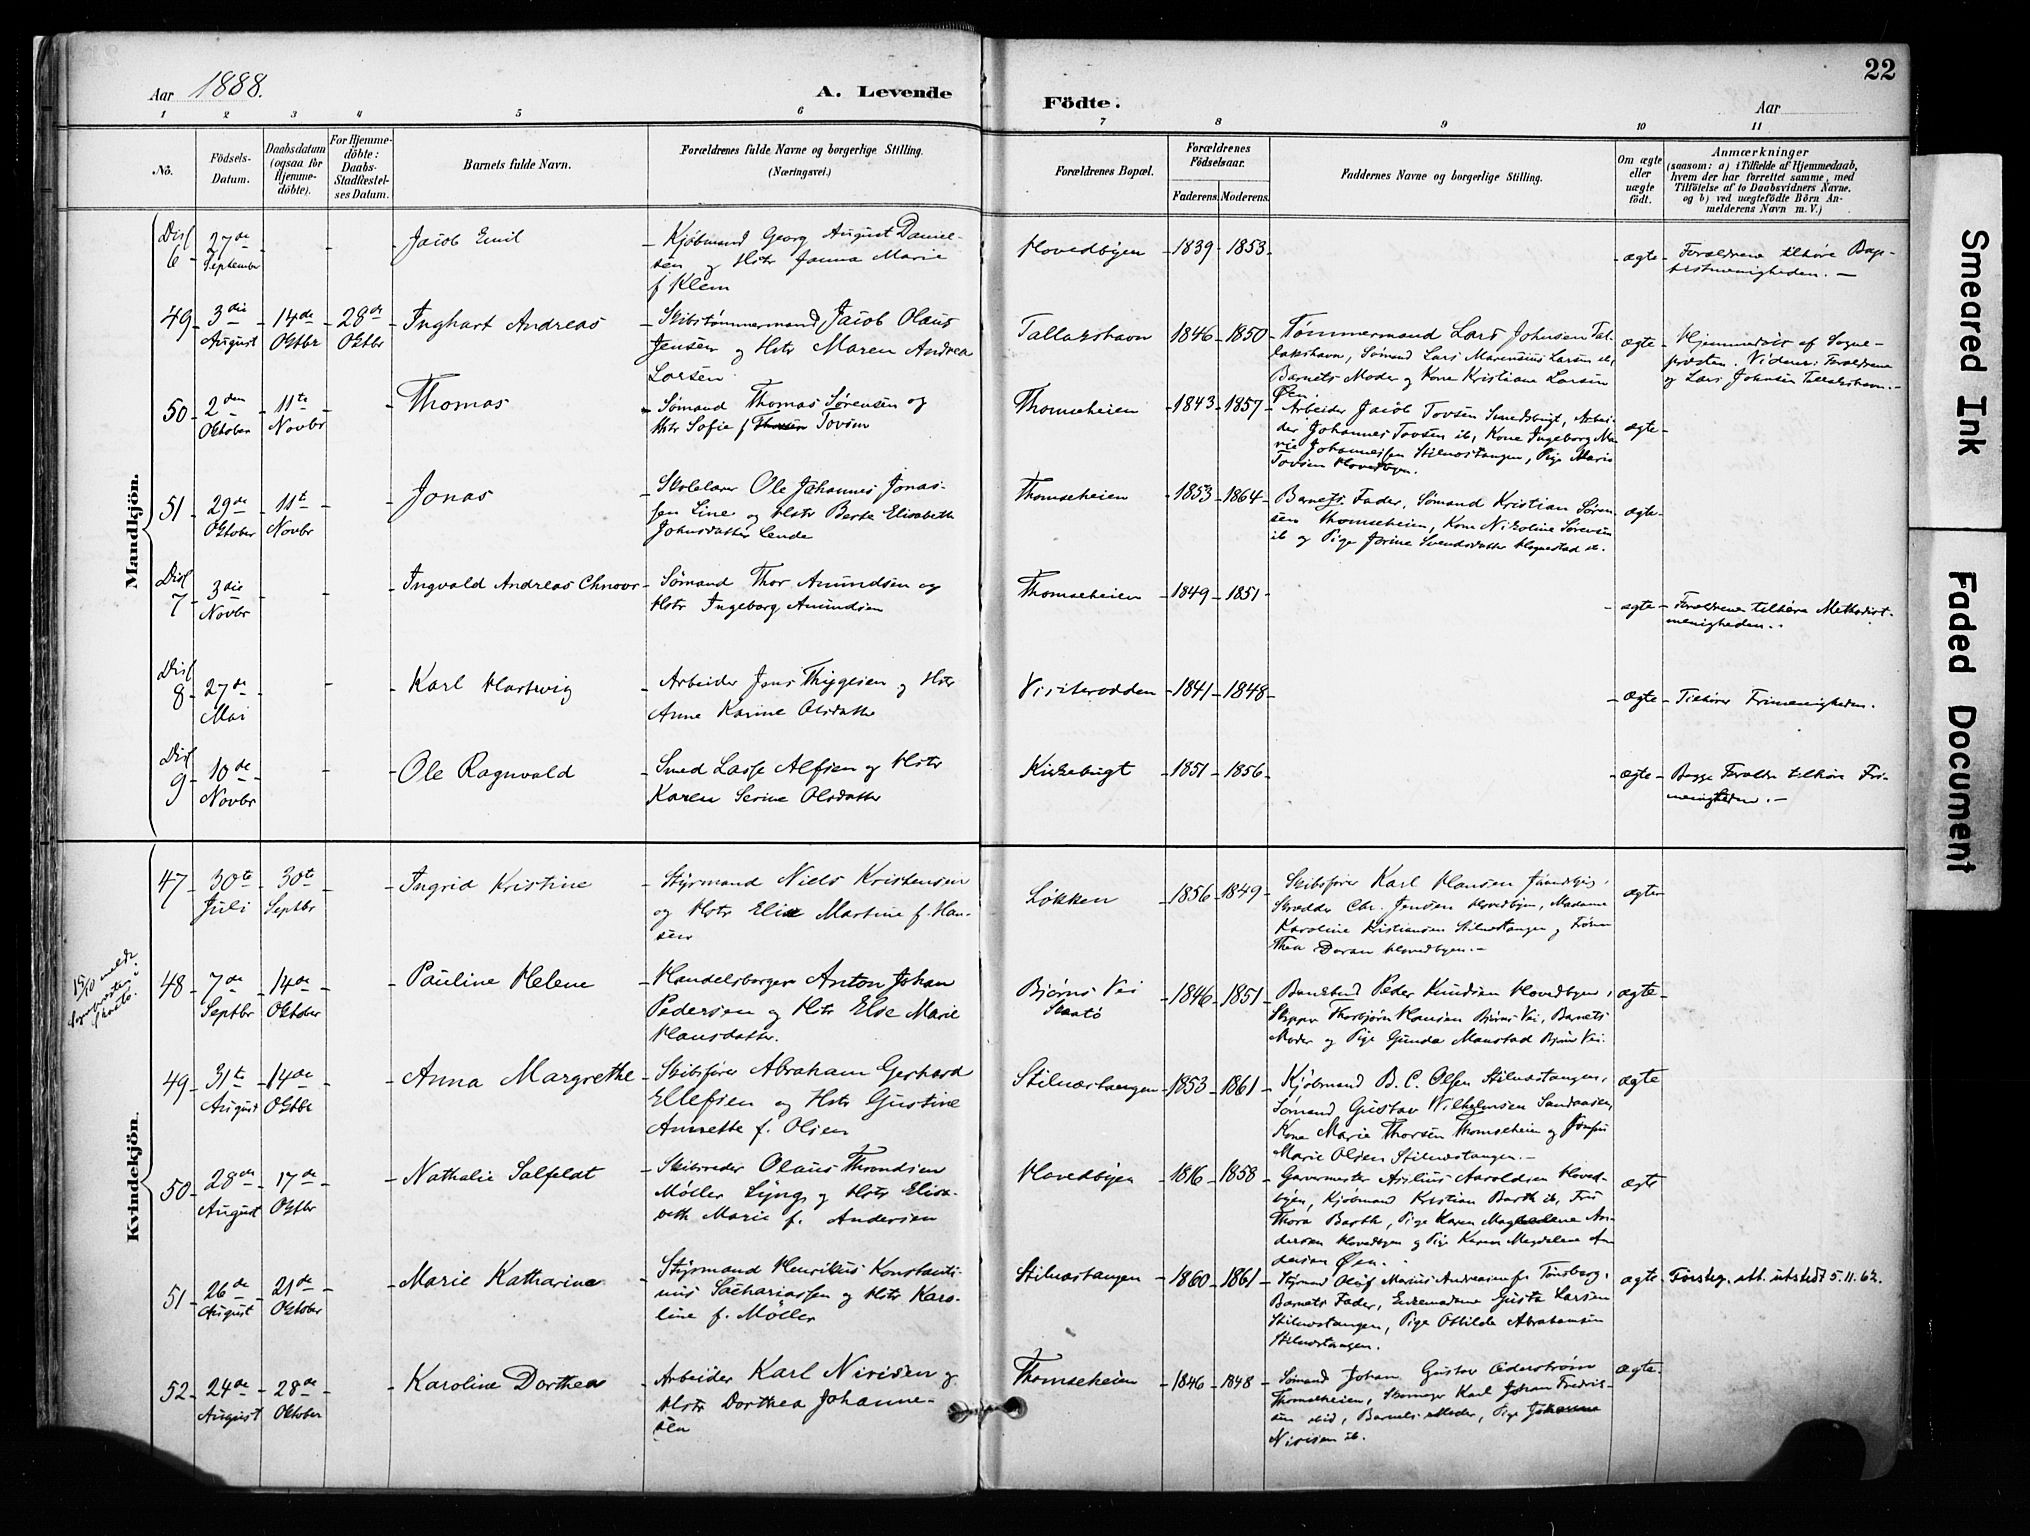 22
Aar 1888.
A. Levende Födte.
Aar
1 2 3 4 5 6 7 8 9 10 11
No.
Födsels-Datum.
Daabsdatum (ogsaa för Hjemme-döbte).
For Hjemme-döbte: Daabs-Stadfæstel-ses Datum.
Barnets fulde Navn.
Forældrenes fulde Navne og borgerlige Stilling.
(Næringsvei.)
Forældrenes Bopæl.
Forældrenes Födselsaar.
Faderens. Moderens.
Faddernes Navne og borgerlige Stilling.
Om ægte eller uægte födt.
Anmærkninger
(saasom: a) i Tilfælde af Hjemmedaab,
hvem der har forrettet samme, med
Tilföielse af to Daabsvidners Navne.
og b) ved uægtefödte Börn An-
melderens Navn m. V.)
Mandkjön.
6 27de September
Jacob Emil
Kjöbmand Georg August Daniel-
sen og Hstr Janna Marie
f Klem
Hovedbyen 1839 1853
ægte
Forældrene tilhöre Bap-
tistmenigheden.
49 3die August 14de Oktbr 28de Oktbr
Inghart Andreas
Skibstømmermand Jacob Olaus
Jensen og Hstr Maren Andrea
Larsen
Tallakshavn 1846 1850
Tømmermand Lars Johnsen Tal-
lakshavn, Sømand Lars Marensius Larsen ib,
Barnets Moder og Kone Kristiane Larsen
Øen.
ægte
Hjemmedøbt af Sogne-
presten. Vidner: Forældrene
og Lars Johnsen Tallakshavn.
50 2den Oktober 11te Novbr
Thomas
Sømand Thomas Sørensen og
Hstr Sofie f Tovsen
Thomseheien 1843 1857
Arbeider Jacob Tovsen Smedsbugt, Arbei-
der Johannes Tovsen ib, Kone Ingeborg Ma-
rie Johannessen Stilnestangen, Pige Marie
Tovsen Hovedbyen.
ægte
51 29de Oktober 11te Novbr
Jonas
Skolelærer Ole Johannes Jonas-
sen Line og Hstr Berte Elisabeth
Johnsdatter Lende
Thomseheien 1853 1864
Barnets Fader, Sømand Kristian Søren-
sen Thomseheien, Kone Nikoline Sørensen
ib og Pige Jorine Svendsdatter Hognestad ib.
ægte
7 3die Novbr
Ingvald Andreas
Sømand Thor Amundsen og
Hstr Ingeborg Amundsen
Thomseheien 1849 1851
ægte
Forældrene tilhöre Methodist-
menigheden.
8 27de Mai
Karl Hartvig
Arbeider Jens Thygesen og Hstr
Anne Karine Olsdatter
1841 1848
ægte
Tilhører Frimenigheden.
9 10de Novbr
Ole Ragnvald
Smed Lasse Alfsen og Hstr
Karen Serine Olsdatter
Kirkebugt 1851 1856
ægte
Begge Forældre tilhöre Fri-
menigheden.
Kvindekjön.
47 30te Juli 30te Septbr
Ingrid Kristine
Styrmand Niels Kristensen
og Hstr Elise Martine f. Han-
sen
Løkken 1856 1849
Skibsfører Karl Hansen
Skrædder Chr. Jensen Hovedbyen, Madame
Karoline Kristiansen Stilnestangen og Frøken
Thea Hovedbyen.
ægte
15/10 meldt
Sognepresten i
Skaatø.
48 7de Septbr 14de Oktober
Pauline Helene
Handelsborger Anton Johan
Pedersen og Hstr Else Marie
Hansdatter.
Bjørns Vei
Skaatö
1846 1851
Peder Knudsen Hovedbyen,
Skipper Thorbjørn Hansen Bjørns Vei, Barnets
Moder og Pige Gunda Manstad Bjørns Vei.
ægte
49 31te August 14de Oktbr
Anna Margrethe
Skibsfører Abraham Gerhard
Ellefsen og Hstr Gustine
Annette f. Olsen
Stilnestangen 1853 1861
Kjöbmand B. C. Olsen Stilnestangen,
Sømand Gustav Wilhelmsen Sandaasen
Kone Marie Thorsen Thomseheien og Jomfru
Marie Olsen Stilnestangen.
ægte
50 28de August 17de Oktbr
Nathalie Salfeldt
Skibsreder Olaus Throndsen
Møller Lyng og Hstr Elisa-
beth Marie f. Andersen
Hovedbyen 1816 1858
Garvermester Asilius Aaroldsen Hoved-
byen, Kjöbmand Kristian Barth ib, Fru
Thora Barth, Pige Karen Magdelene An-
dersen Hovedbyen og Pige Karen Magdelene An-
dersen Øen.
ægte
51 26de August 21de Oktober
Marie Katharine
Styrmand Henrikus Konstanti-
nus Sachariassen og Hstr Karo-
line f. Møller
Stilnestangen 1860 1861
Styrmand Oluf Marius Andreasen fr. Tönsberg,
Barnets Fader, Enkemadame Gusta Larsen
Stilnestangen, Pige Othilde Abrahamsen
Stilnestangen.
ægte
Førsteg. att. utstedt 5.11.62.
52 24de August 28de Oktober
Karoline Dorthea
Arbeider Karl Nirisen og
Hstr Dorthea Johanne-
sen
Thomseheien 1846 1848
Sømand Johan Gustav Cederstrøm
Thomseheien, Skomager Karl Johan Fredrik-
sen ibid, Barnets Moder, Pige Johanne
Nirisen ib.
ægte
Smeared Ink
Faded Document